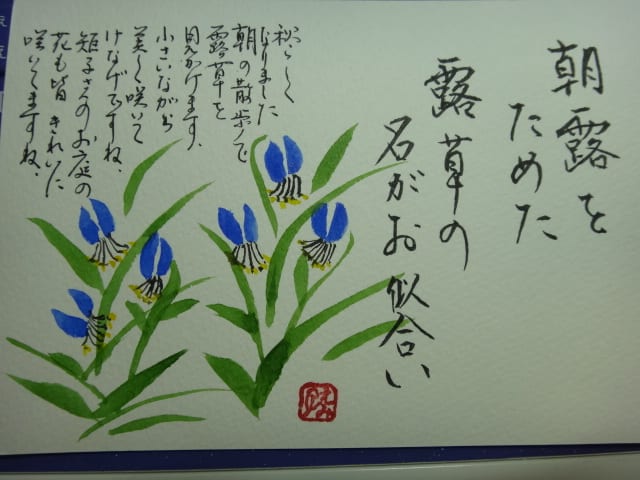 朝露を
ためた
露草の
名がお似合い
秋らしく
なりました
朝の散歩で
露草を
見かけます。
小さいながら
美しく咲いて
けなげですね、
矩子さんのお庭の
花も皆きれいに
咲いてますね、